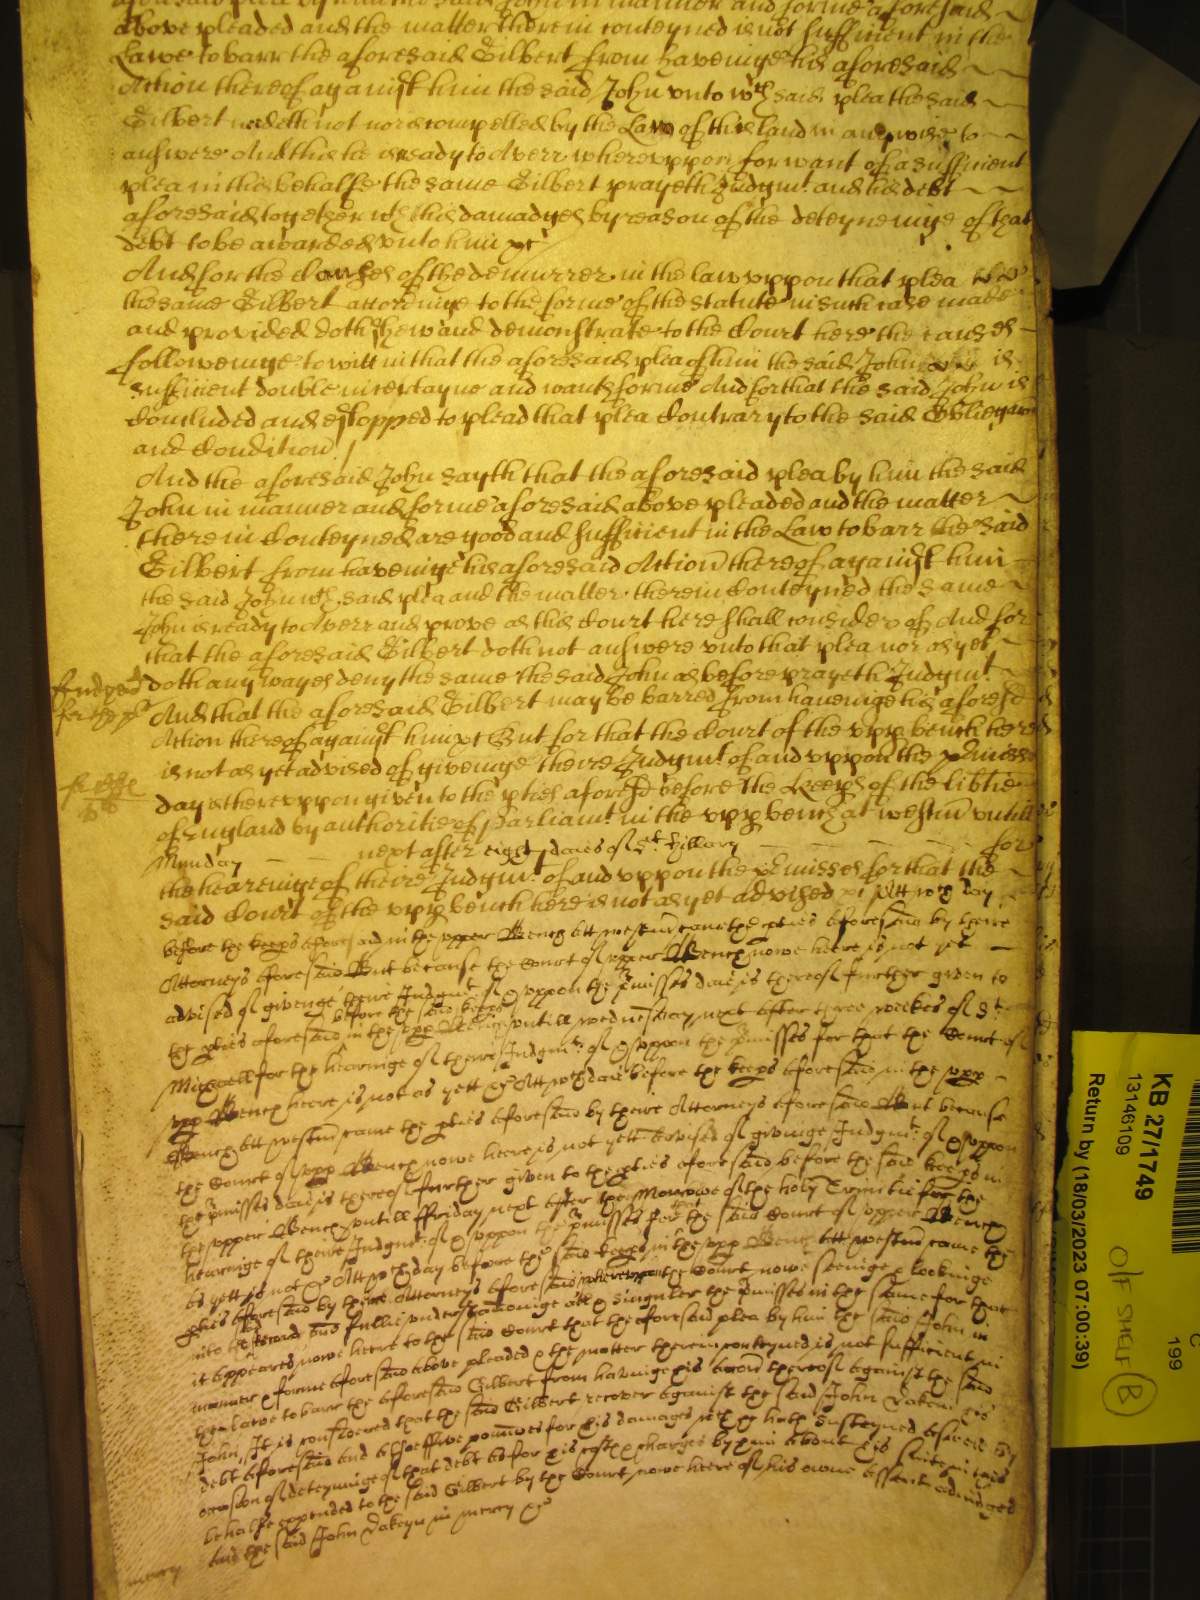 aforesaid plea by him the said John in manner and forme aforesaid
above pleaded and the matter therein conteyned is not sufficient in the
Lawe to barr the aforesaid Gilbert from haveinge his aforesaid
Action thereof against him the said John unto wch said plea the said
Gilbert needeth not nor is compelled by the Law of this land in any wise to
answere And this he is ready to Averr whereuppon for want of a sufficient
plea in this behalfe the same Gilbert prayeth Judgmt. and his debt
aforesaid together wth his damadges by reason of the deteyneinge of that
debt to be awarded unto him &c
And for the Causes of the demurrer in the law uppon that plea
the same Gilbert accordinge to the forme of the statute in such case made
and provided doth shew and demonstrate to the Court here the causes
followeinge to witt in that the aforesaid plea of him the said John is
sufficient double incertayne and wants forme And for that the said John is
Concluded and estopped to plead that plea Contrary to the said
and Condition /
And the aforesaid John sayth that the aforesaid plea by him the said
John in manner and forme aforesaid above pleaded and the matter
therein Conteyned are good and sufficient in the Law to barr the said
Gilbert from haveinge his aforesaid Action thereof against him
the said John wch said plea and the matter therein Conteyned the same
John is ready to Averr and prove as this Court here shall consider of And for
that the aforesaid Gilbert doth not answere unto that plea nor as yet
doth any wayes deny the same the said John as before prayeth Judgmt.
And that the aforesaid Gilbert may be barred from haveinge his aforesd
Action thereof against him &c But for that the Court of the upp bench here
is not as yet advised of giveinge theire Judgmt of and uppon the p'misses
day is thereuppon given to the pties aforesd before the Keeps of the libtie
of England by authoritie of Parliamt. in the upp bench at westm untill
Munday next after eight daies of St. Hillary for
the heareinge of theire Judgmt. of and uppon the p'misses for that the
said Court of the upp bench here is not as yet advised &c Att wch day
before the keeps aforesaid in the upper Bench att westm came the pties aforesaid by theire
Attorneys aforesaid But because the Court of upper Bench nowe heere is not yet
advised of givenge theire Judgmt. of & uppon the p'misses daie is thereof further given to
before the said keeps
the pties aforesaid in the upp Bench untill wednesday next after three weekes of St.
Michaell for the hearinge of theire Judgmt. of & uppon the p'misses for that the Court of
upp Bench heere is not as yett &c Att wch daie before the keeps aforesaid in the upp
Bench att westm came the pties aforesaid by theire Attorneys aforesaid But because
the Court of upp Bench nowe heere is not yett advised of givinge Judgmt. of & uppon
the p'misses daie is thereof further given to the pties aforesaid before the said keeps in
the upper Bench untill ffriday next after the Morrowe of the holy Trinitie for the
hearinge of theire Judgmt. of & uppon the p'misses for that the said Court of upper Bench
as yett is not &c Att wch day before the said keeps in the upp Bench att westm came the
pties aforesaid by theire Attorneys aforesaid whereuppon the Court nowe seeinge & lookinge
into the record and fullie understandinge all & singuler the p'misses in the same for that
it appeares nowe heere to the said Court that the aforesaid plea by him the said John in
manner & forme aforesaid above pleaded & the matter therein conteyned is not sufficient in
the lawe to barr the aforesaid Gilbert from havinge his accon thereof against the said
John, It is considered that the said Gilbert recover against the said John Dakeyn his
debt aforesaid and alsoe ffive pounds for his damages wch he hath susteyned aswell by
occasion of deteyninge of that debt as for his costs & charges by him about his suite in this
behalfe expended to the said Gilbert by the Court nowe heere of his owne assent adiudged
And the said John Dakeyn in mercy &c
mercy
KB 27/1749
13146109
Return by (18/03/2023 07:00:39)
199
O/F SHELF B